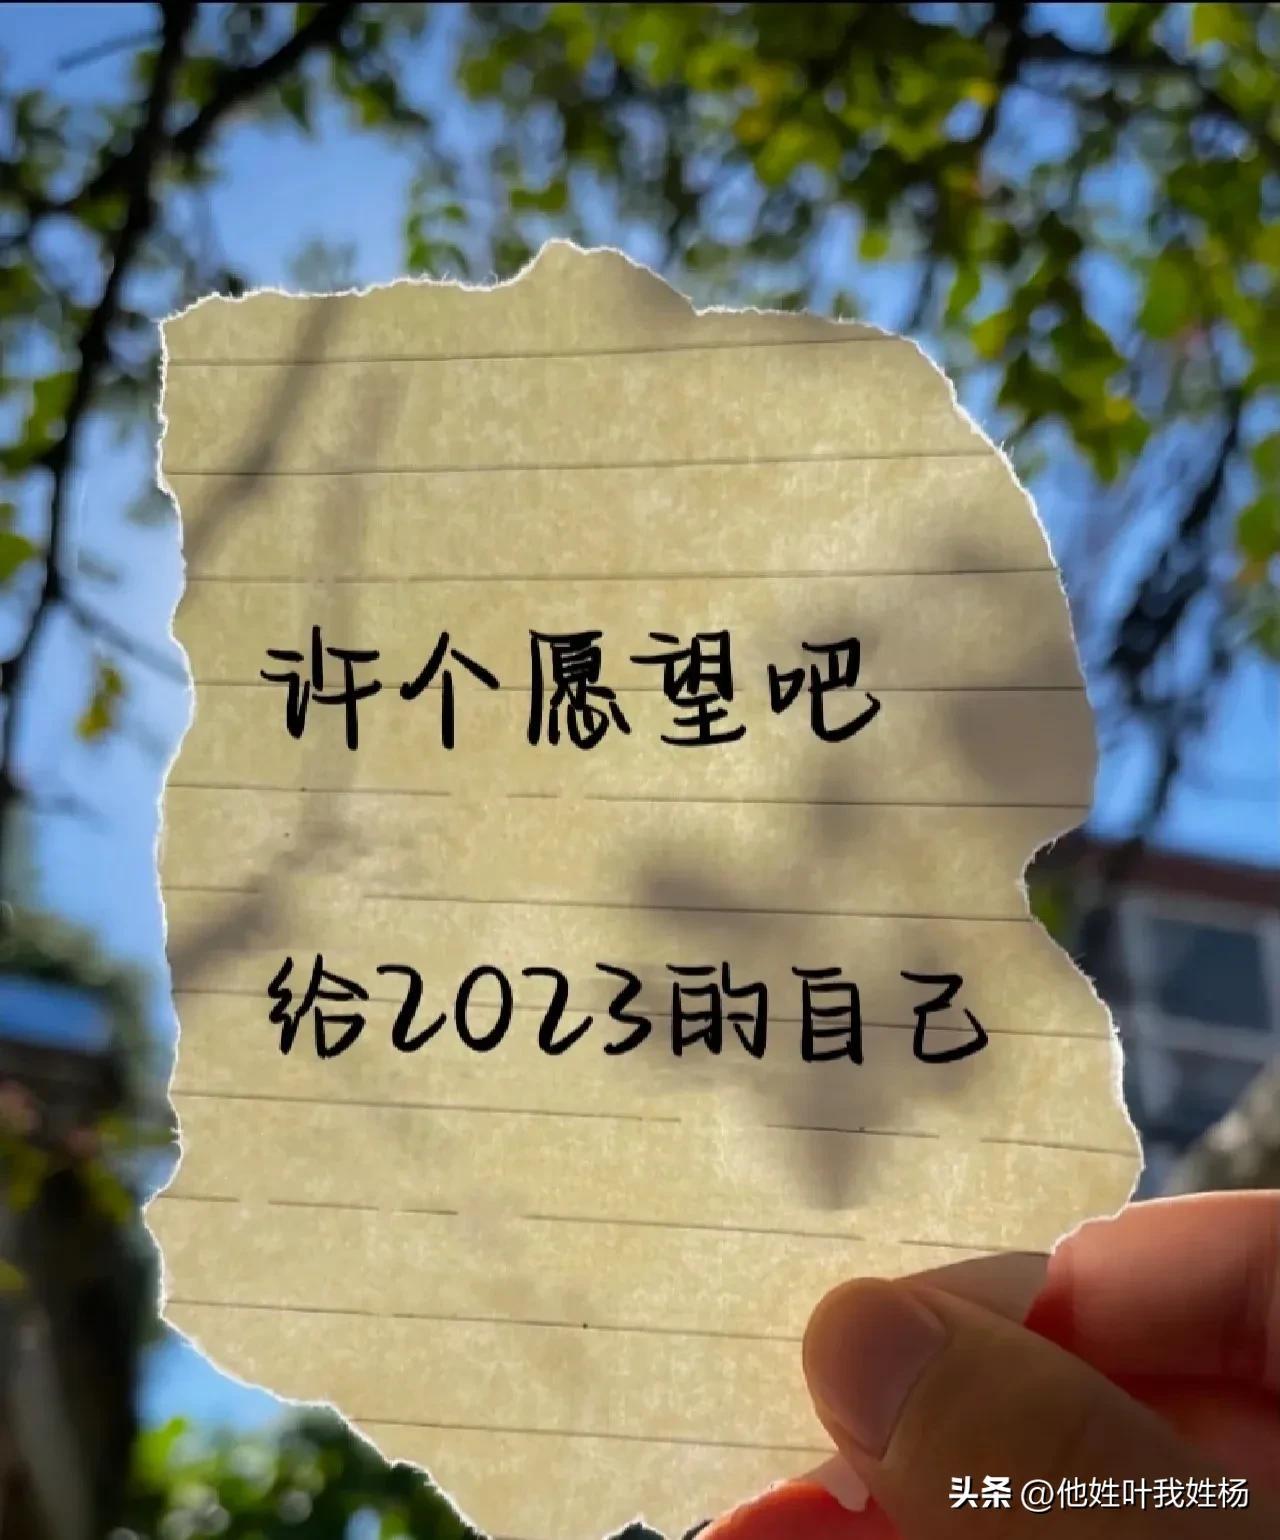 许个愿望吧
给2023的自己
头条 @他姓叶我姓杨